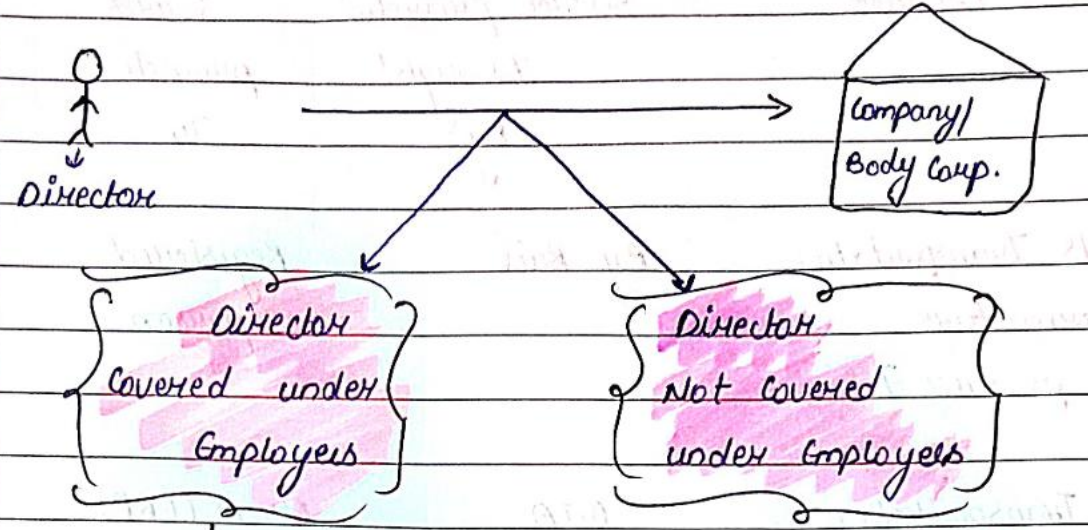 Director
Company/
Body Corp.
Director
Covered under
Employees
Director
Not Covered
under Employees